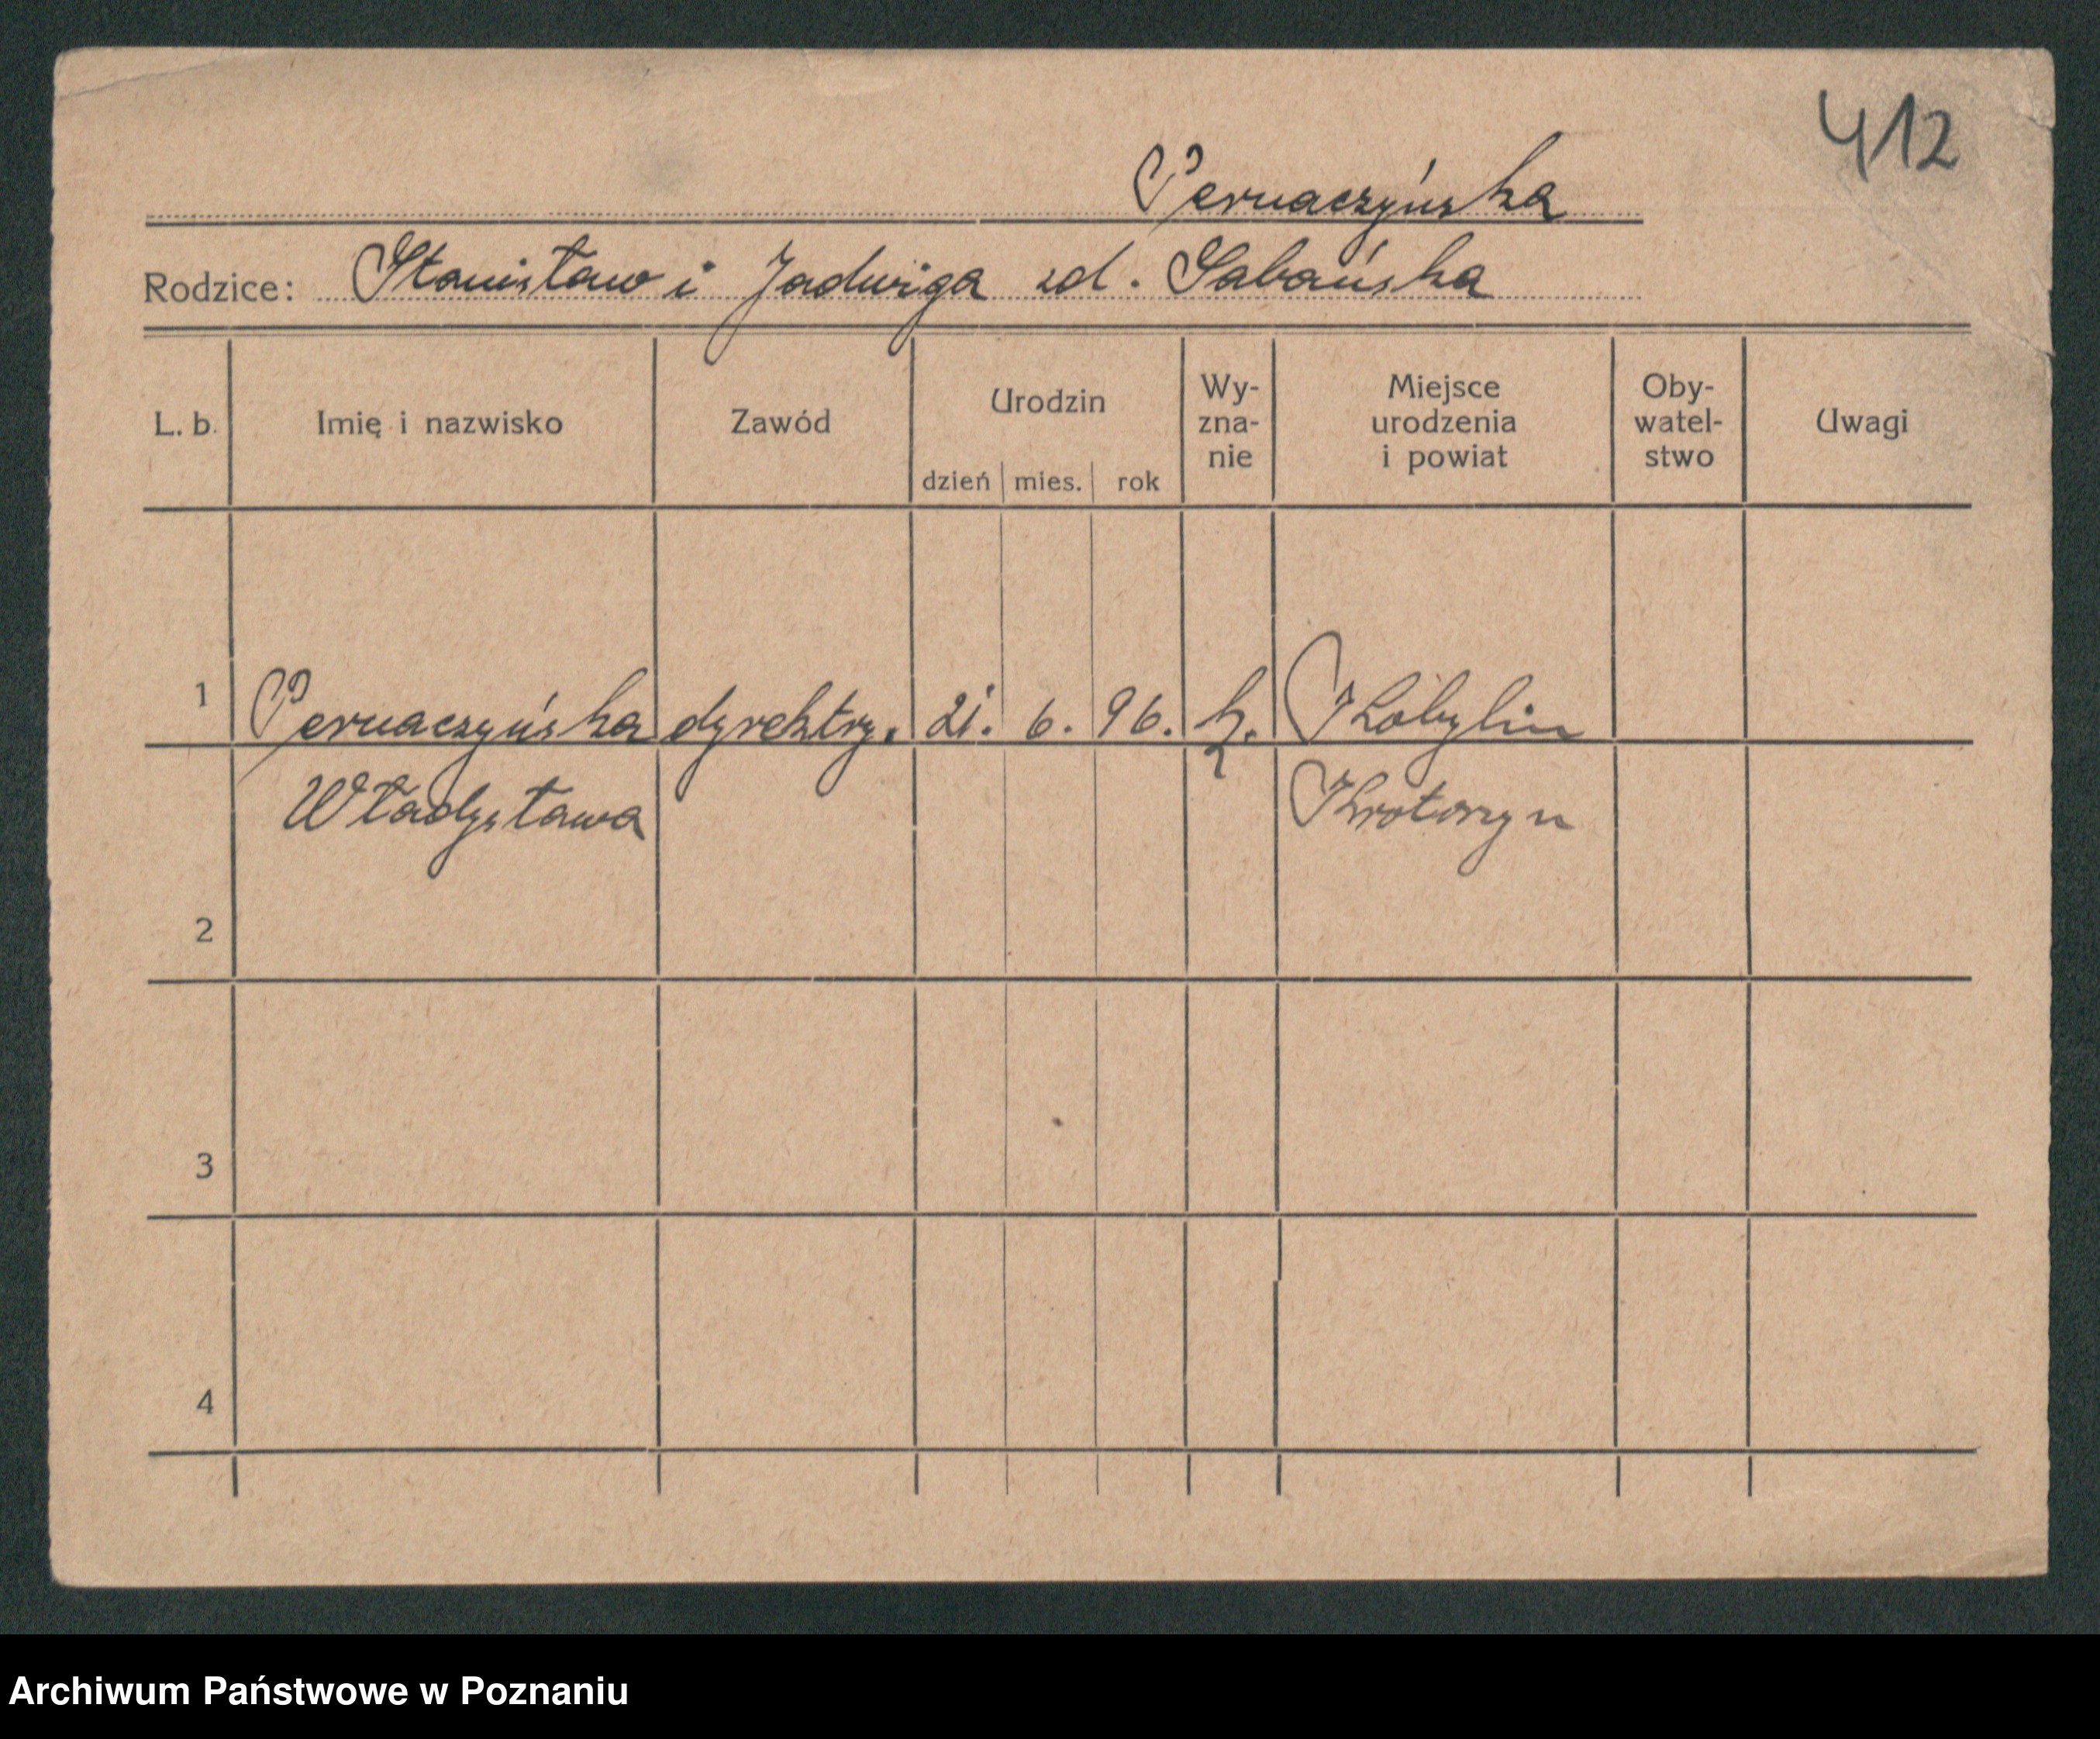 412
Pernaczyńska
Rodzice: Stanisław i Jadwiga zd. Sabańska
L. b. Imię i nazwisko Zawód Urodzin dzień mies. rok Wy-zna-nie Miejsce urodzenia i powiat Oby-watel-stwo Uwagi
1 Pernaczyńska dyrektry. 21. 6. 96. k. Kobylin
Władysława Krotoszyn
2
3
4
Archiwum Państwowe w Poznaniu